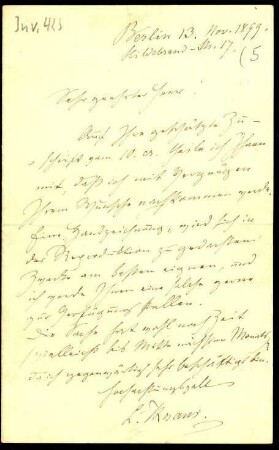 Inv. 423
Berlin 13. Nov. 1899.
Hildebrand-Str. 17.
(5
Sehr geehrter Herr!
Auf Ihre geschätzte Zu-
schrift vom 10. cr. theile ich Ihnen
mit, daß ich mit Vergnügen
Ihrem Wunsche nachkommen werde.
Eine Handzeichnung, wird sich in
der Reproduktion zu gedachtem
Zwecke am besten eignen, und
ich werde Ihnen eine solche gerne
zur Verfügung stellen.
Die Sache hat wohl noch Zeit
vielleicht bis Mitte nächsten Monats,
da ich gegenwärtig sehr beschäftigt bin.
Hochachtungsvoll
L. Knaus.